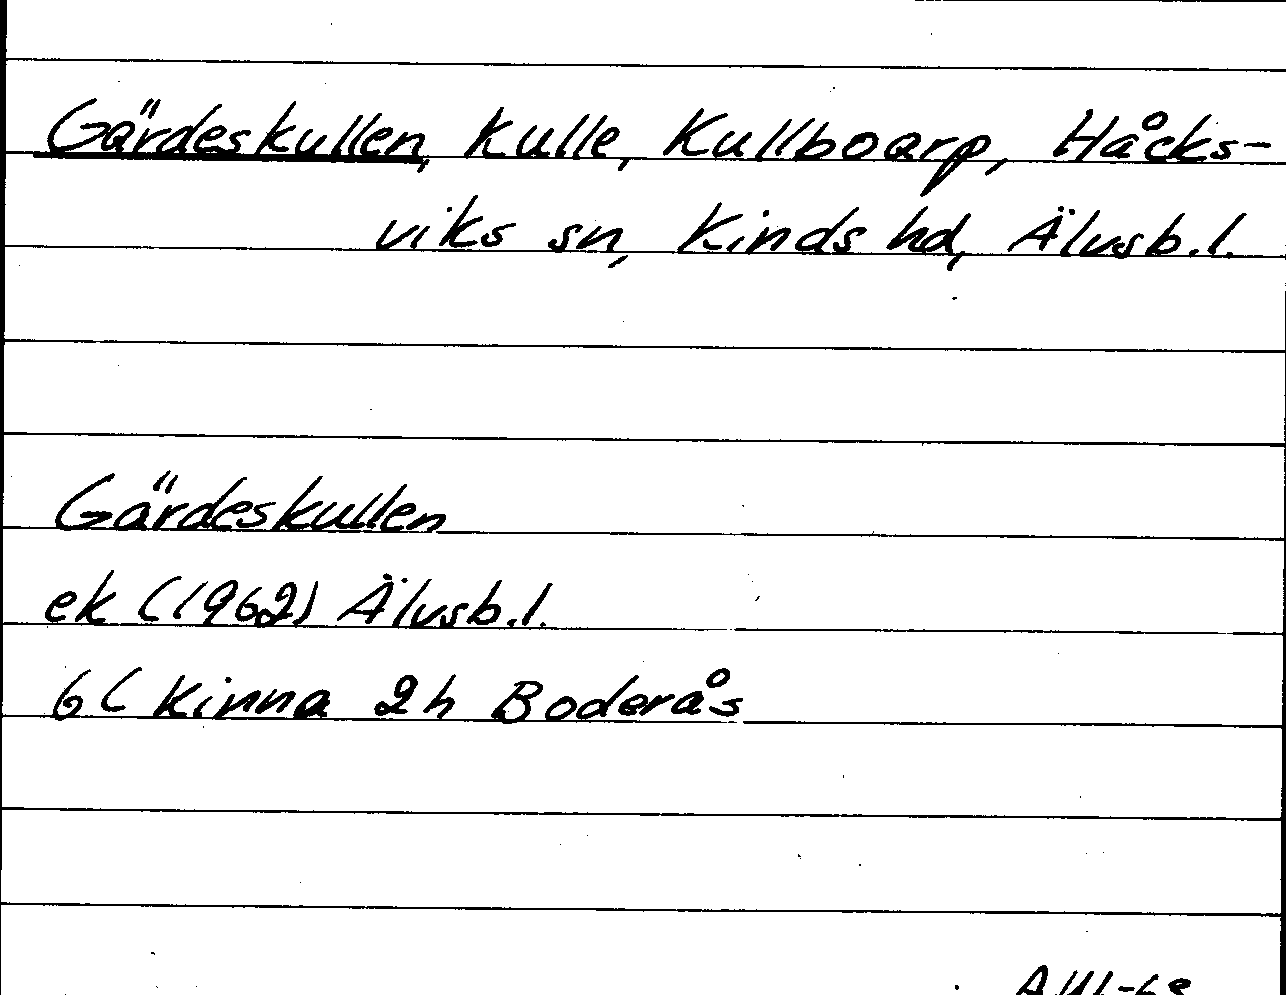 Gärdeskullen, Kulle, Kullboarp, Håcks-
viks sn, Kinds hd, Älvsb.l.
Gärdeskullen
ek (1962) Älvsb.l.
6C Kinna 2h Boderås